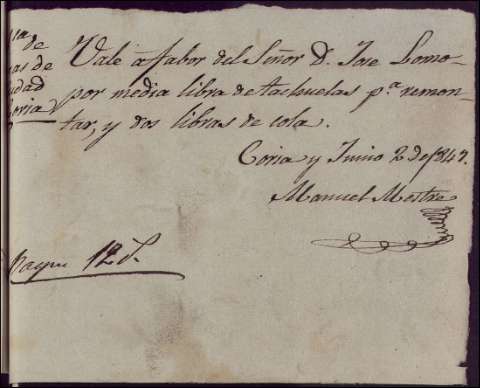 de
as de
udad
Coria
Vale á fabor del Señor D. Jose Lomo-
por media libra de tachuelas p.ª remon-
tar, y dos libras de cola.
Coria y Junio 2 de 1847.
Manuel Mestre
12